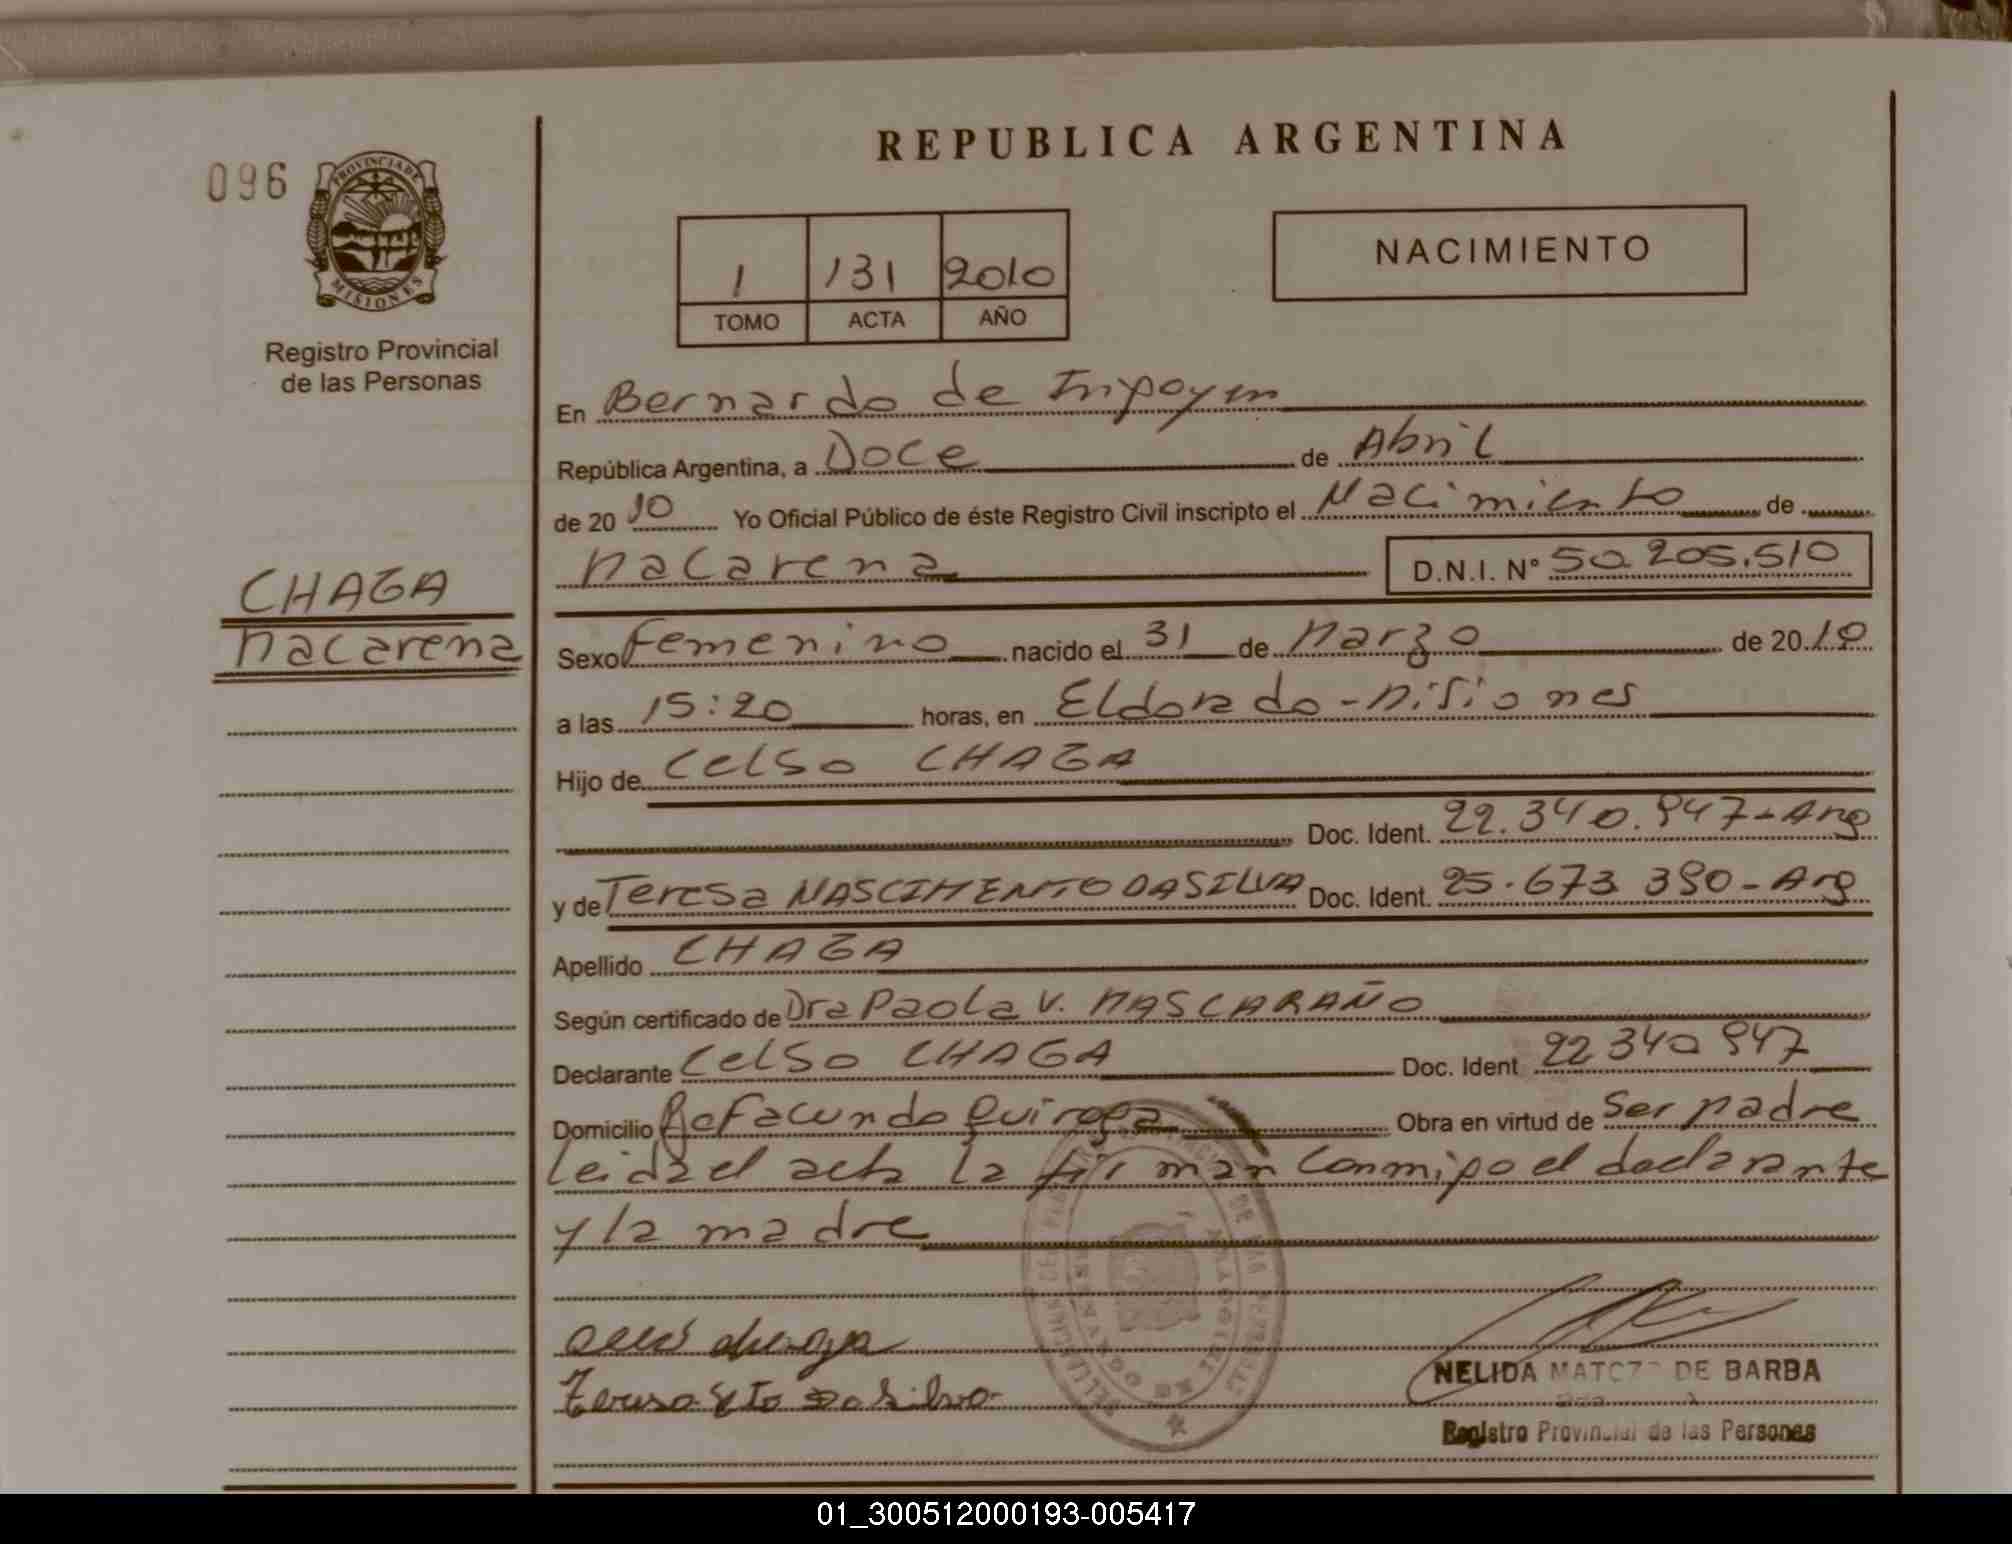 REPUBLICA ARGENTINA
096
PROVINCIA DE
MISIONES
Registro Provincial
de las Personas
1 131 2010
TOMO ACTA AÑO
NACIMIENTO
En Bernardo de Irigoyen
República Argentina, a Doce de Abril
de 2010 Yo Oficial Público de éste Registro Civil inscripto el Nacimiento de
Macarena D.N.I. N° 50.205.510
CHAGA
Macarena
Sexo Femenino nacido el 31 de Marzo de 2010
a las 15:20 horas, en Eldorado - Misiones
Hijo de Celso CHAGA
Doc. Ident. 22.340.947 - Arg
y de Teresa NASCIMENTO DA SILVA Doc. Ident. 25.673.390 - Arg
Apellido CHAGA
Según certificado de Dra Paola V. MASCARAÑO
Declarante Celso CHAGA Doc. Ident 22340947
Domicilio Facundo Quiroga Obra en virtud de Ser padre
Leida el acta la firman conmigo el declarante
y la madre
NELIDA DE BARBA
Registro Provincial de las Personas
01_300512000193-005417